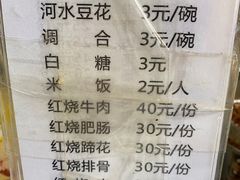 河水豆花 3元/碗
调合 3元/碗
白糖 3元
米饭 2元/人
红烧牛肉 40元/份
红烧肥肠 30元/份
红烧蹄花 30元/份
红烧排骨 30元/份